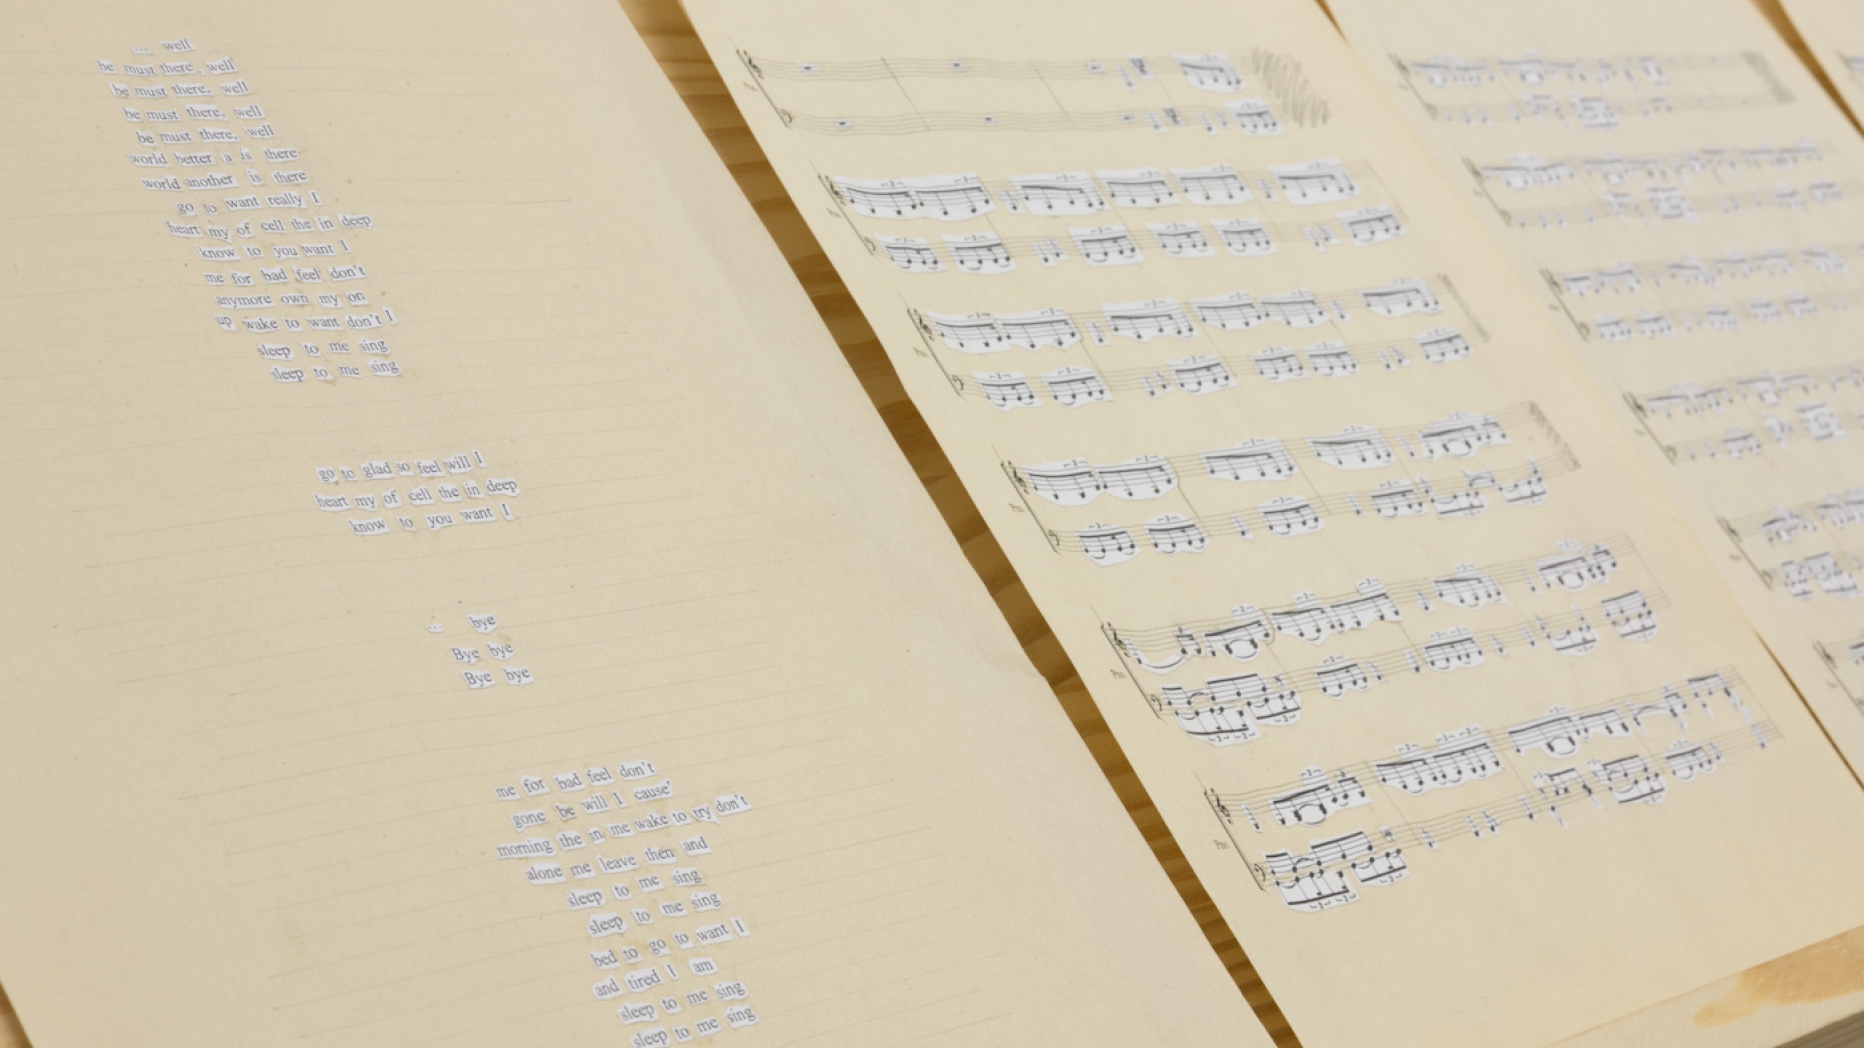 ... well
be must there, well
be must there, well
be must there, well
be must there, well
world better a is there
world another is there
go to want really I
heart my of cell the in deep
know to you want I
me for bad feel don't
anymore own my on
up wake to want don't I
sleep to me sing
sleep to me sing
go to glad so feel will I
heart my of cell the in deep
know to you want I
... bye
Bye bye
Bye bye
me for bad feel don't
gone be will I cause'
morning the in me wake to try don't
alone me leave then and
sleep to me sing
sleep to me sing
bed to go to want I
and tired I am
sleep to me sing
sleep to me sing